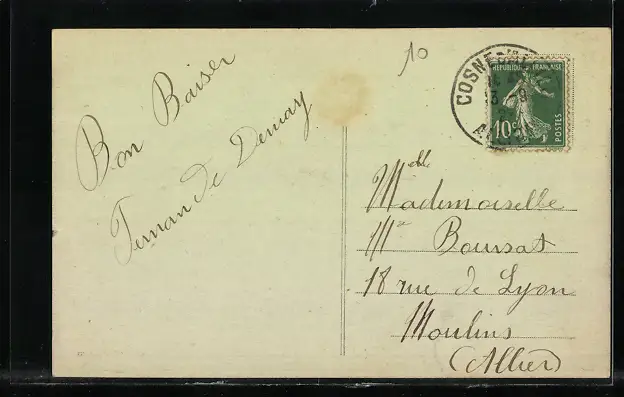 Bon Baiser
Fernande Demay
10
COSNE
REPUBLIQUE FRANÇAISE
10c
POSTES
Mademoiselle
Mlle Boursat
18 rue de Lyon
Moulins
(Allier)